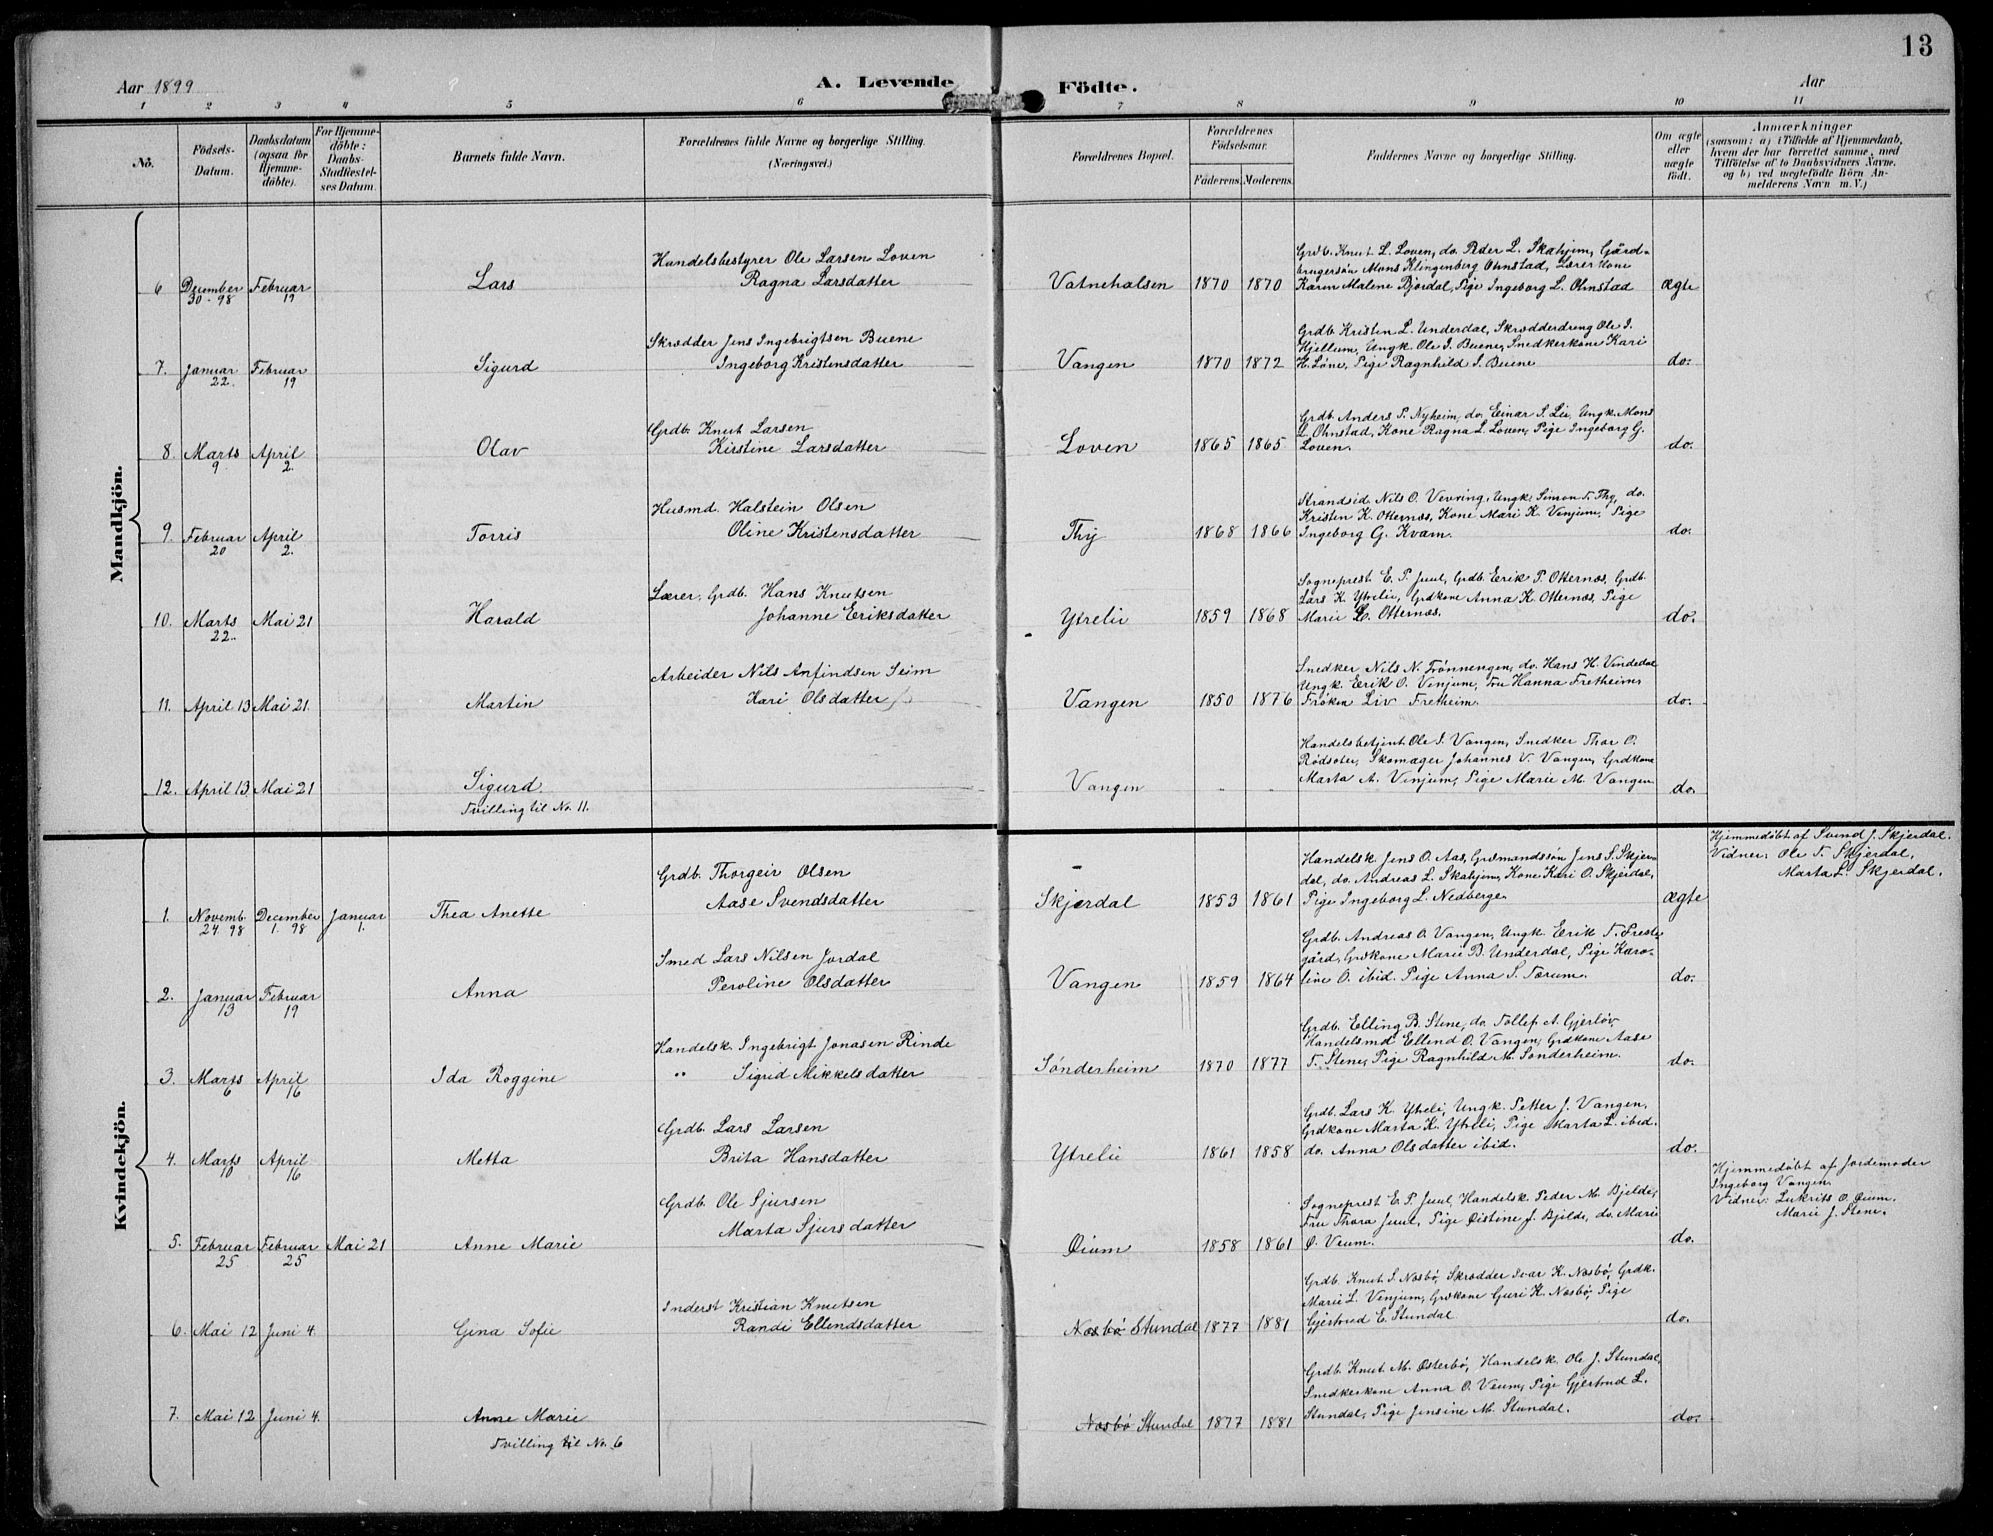 13
Aar 1899
A. Levende
Födte.
Aar
1 2 3 4 5 6 7 8 9 10 11
Nö.
Födsels-
Datum.
Daabsdatum
(ogsaa for
Hjemme-
döbte).
For Hjemme-
döbte:
Daabs-
Stadfæstel-
ses Datum.
Barnets fulde Navn.
Forældrenes fulde Navne og borgerlige Stilling.
(Næringsvei.)
Forældrenes Bopæl.
Forældrenes
Födselsaar.
Faderens.
Moderens.
Faddernes Navne og borgerlige Stilling.
Om ægte
eller
uægte
födt.
Anmærkninger
(saasom: a) i Tilfælde af Hjemmedaab,
hvem der har forrettet samme, med
Tilföielse af to Daabsvidners Navne.
og b) ved uægtefödte Börn An-
melderens Navn m. V.)
Mandkjön.
Handelsbestyrer Ole Larsen Loven
Ragna Larsdatter
6 December Februar Lars Vatnehalsen 1870 1870 ægte
30-98 19
Grdb. Knut L. Loven, do. Peder L. Skahjem, Gård-
brugersøn Mons Klingenberg Ohnstad, Lærerkone
Karen Malene Bjordal, Pige Ingeborg L. Ohnstad
Skrædder Jens Ingebrigtsen Buene
Ingeborg Kristensdatter
7. Januar Februar Sigurd Vangen 1870 1872 do.
22. 19
Grdb. Kristen L. Underdal, Skrædderdreng Ole I.
Hjellum, Ungk. Ole I. Buene, Snedkerkone Kari
H. Løne, Pige Ragnhild I. Buene
Grdb. Knut Larsen
Kirstine Larsdatter
8. Marts April Olav Loven 1865 1865 do.
9 2.
Grdb. Anders P. Nyheim, do. Einar S. Lie, Ungk. Mons
L. Ohnstad, Kone Ragna L. Loven, Pige Ingeborg G.
Loven.
Husmd. Halstein Olsen
Oline Kristensdatter
9. Februar April Torris Thy 1868 1866 do.
20 2.
Strandsid. Nils O. Vevring, Ungk. Simon T. Thy, do.
Kristen K. Otternæs, Kone Mari K. Venjum, Pige
Ingeborg G. Kvam.
Lærer, Grdb. Hans Knutsen
Johanne Eriksdatter
10. Marts Mai 21 Harald Ytrelie 1859 1868 do.
22.
Sogneprest E. P. Juul, Grdb. Erik P. Otternæs, Grdb.
Lars K. Ytrelie, Grdkone Anna K. Otternæs, Pige
Marie L. Otternæs.
Arbeider Nils Anfindsen Seim
Kari Olsdatter
11. April 13 Mai 21. Martin Vangen 1850 1876 do.
Snedker Nils N. Trønnengen, do. Hans H. Vindedal
Ungk. Erik O. Venjum, Fru Hanna Fretheim
Frøken Liv Fretheim.
12. April 13 Mai 21 Sigurd. Vangen - - do.
Tvilling til No. 11.
Handelsbetjent Ole I. Vangen, Snedker Thor O.
Rødsoter, Skomager Johannes V. Vangen, Grdkone
Marta A. Venjum, Pige Marie M. Vangen
Kvindekjön.
Grdb. Thorgeir Olsen
Aase Svendsdatter
1. Novemb. December Januar Thea Anette Skjerdal 1853 1861 ægte
24. 98 1. 98 1.
Handelsk. Jens O. Aas, Grdmandssøn Jens S. Skjer-
dal, do. Andreas L. Skahjem, Kone Kari O. Skjerdal,
Pige Ingeborg L. Nedberge.
Hjemmedøbt af Svend J. Skjerdal.
Vidner: Ole T. Skjerdal,
Marta L. Skjerdal.
Smed Lars Nilsen Jordal
Peroline Olsdatter
2. Januar Februar Anna Vangen 1859 1864 do.
13 19
Grdb. Andreas O. Vangen, Ungk. Erik T. Preste-
gård, Grdkone Marie B. Underdal, Pige Karo-
line O. ibid. Pige Anna S. Tærum.
Handelsk. Ingebrigt Jonasen Rinde
" Sigrid Mikkelsdatter
3. Marts April Ida Roggine Sønderheim 1870 1877 do.
6 16
Grdb. Elling B. Stene, do. Tollep A. Gjerløv,
Handelsmd. Ellend O. Vangen, Grdkone Aase
T. Stene, Pige Ragnhild M. Sønderheim.
Grdb. Lars Larsen
Brita Hansdatter
4. Marts April Metta Ytrelie 1861 1858 do.
10 16
Grdb. Lars K. Ytreli, Ungk. Petter J. Vangen,
Grdkone Marta K. Ytreli, Pige Marta L. ibid.
do. Anna Olsdatter ibid.
Grdb. Ole Sjursen
Marta Sjursdatter
5. Februar Februar Mai 21 Anne Marie Øium 1858 1861 do.
25 25
Sogneprest E. P. Juul, Handelsk. Peder M. Bjelde,
Fru Thora Juul, Pige Øistine J. Bjelde, do. Marie
O. Veum.
Hjemmedøbt af Jordemoder
Ingeborg Vangen.
Vidner: Lukrits O. Øium.
Marie J. Stene.
Inderst Kristian Knutsen
Randi Ellendsdatter
6. Mai 12 Juni 4. Gina Sofie Næsbø Stundal 1877 1881 do.
Grdb. Knut S. Næsbø, Skrædder Ivar K. Næsbø, Grdk.
Marie L. Venjum, Grdkone Guri K. Næsbø, Pige
Gjertrud E. Stundal
7. Mai 12 Juni 4. Anne Marie Næsbø Stundal 1877 1881 do.
Tvilling til No. 6
Grdb. Knut M. Østerbø, Handelsk. Ole J. Stundal,
Snedkerkone Anna O. Veum, Pige Gjertrud L.
Stundal, Pige Jensine M. Stundal.